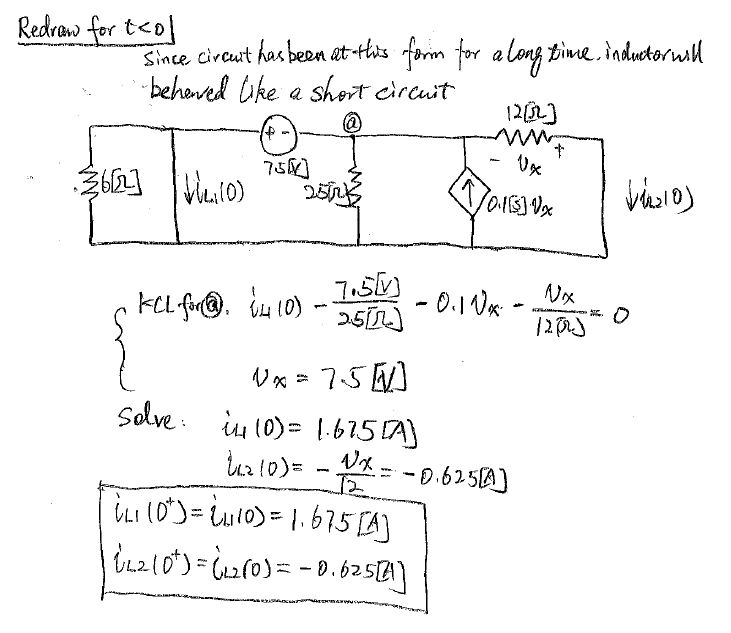 Redraw for t<0
Since circuit has been at this form for a long time. inductor will
behaved like a short circuit
12[Ω]
ⓐ
+ -
- vx +
7.5[V]
6[Ω]
↓iL1(0)
25[Ω]
0.1[S] vx
↓iL2(0)
KCL for ⓐ. iL1(0) - 7.5[V]/25[Ω] - 0.1vx - vx/12[Ω] = 0
vx = 7.5[V]
Solve: iL1(0) = 1.675[A]
iL2(0) = - vx/12 = -0.625[A]
iL1(0⁺) = iL1(0) = 1.675[A]
iL2(0⁺) = iL2(0) = -0.625[A]